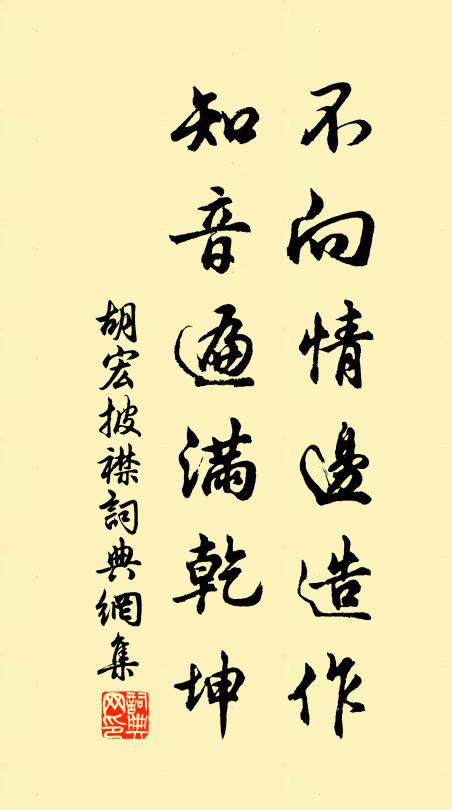 不向情邊造作
知音遍滿乾坤
胡宏披襟詞典網集
詞典
网印